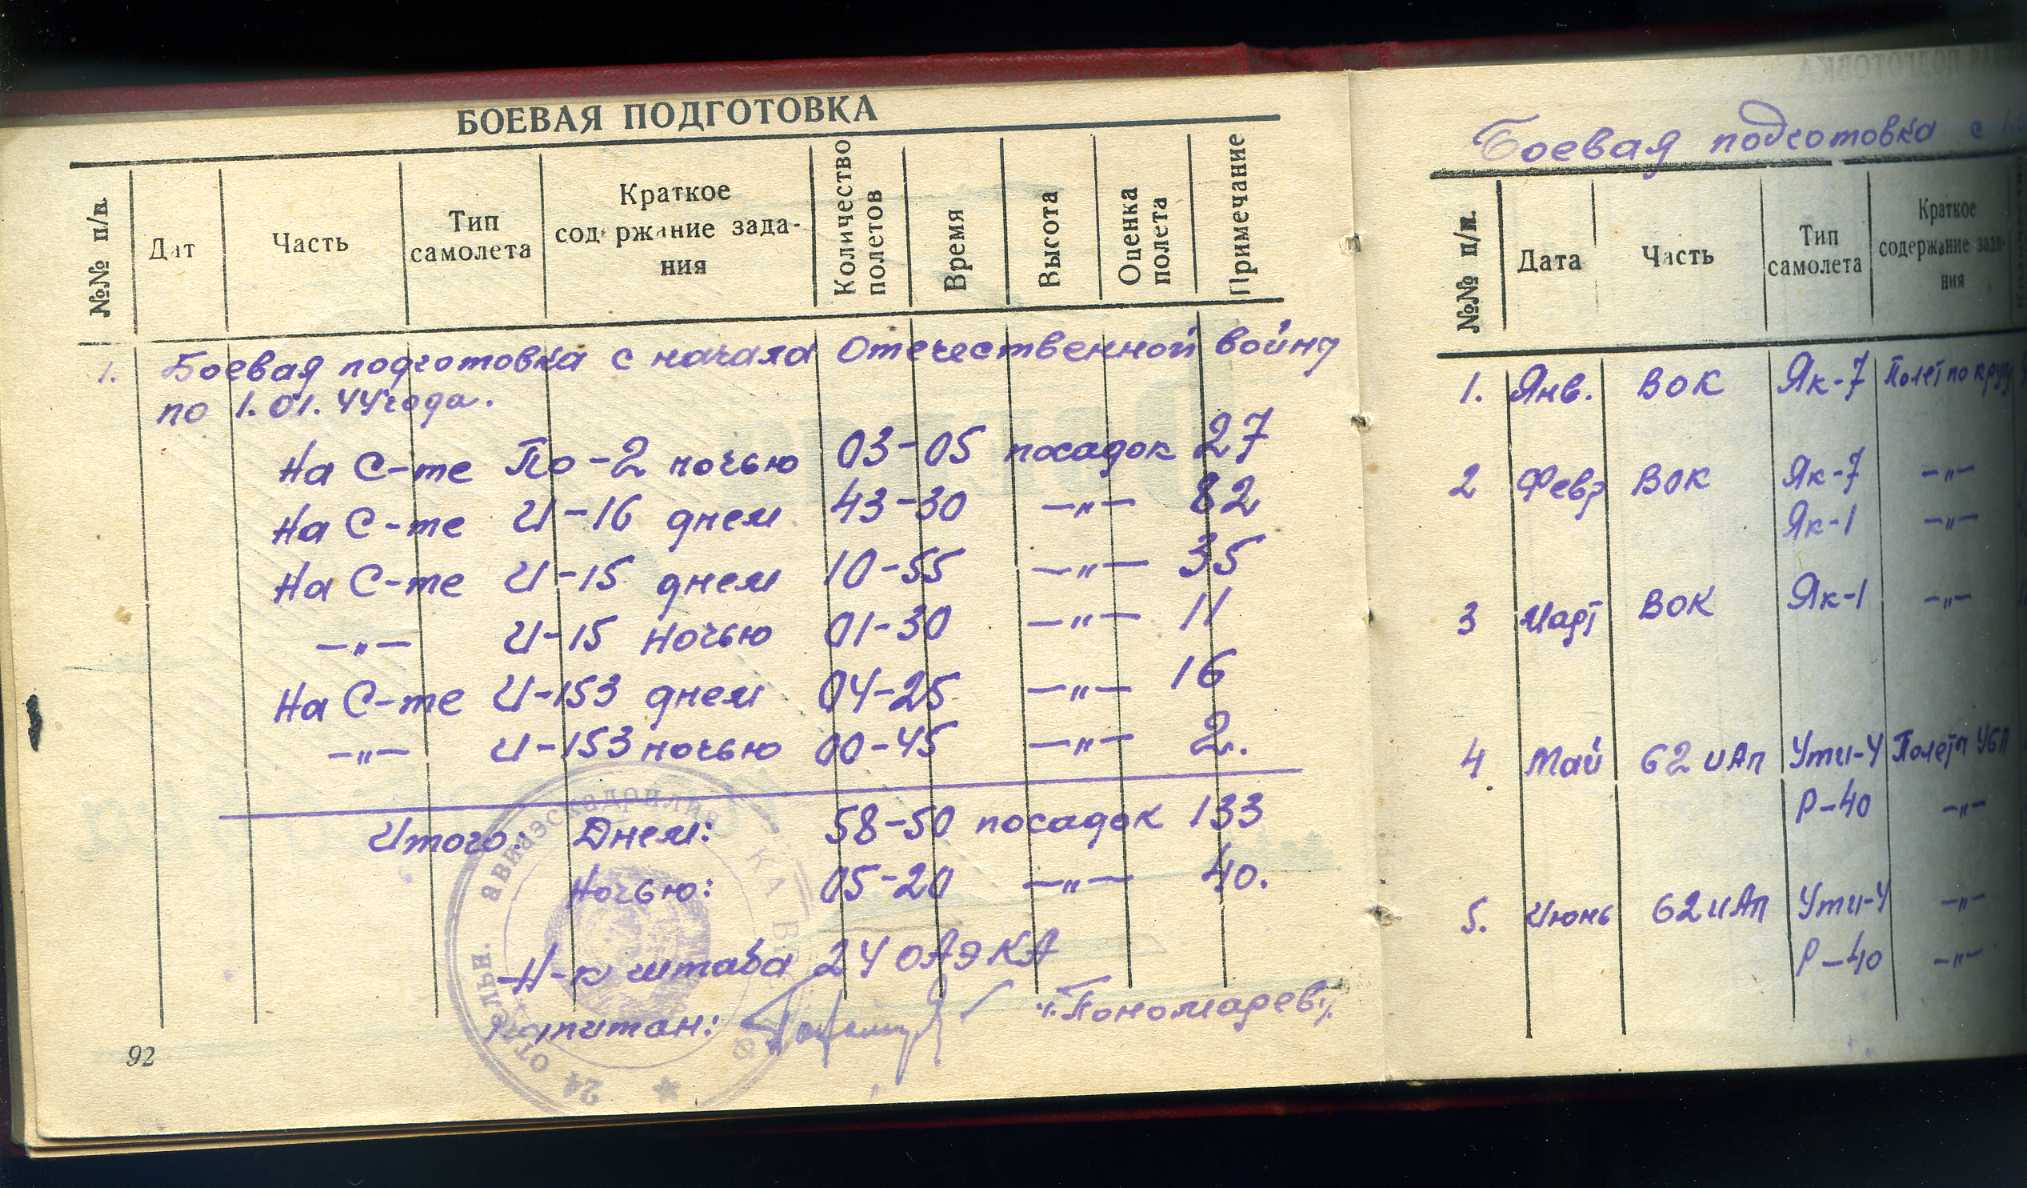 БОЕВАЯ ПОДГОТОВКА
№№ п/п. Дат Часть Тип самолета Краткое содержание задания Количество полетов Время Высота Оценка полета Примечание
1. Боевая подготовка с начала Отечественной войны
по 1.01.44 года.
На С-те По-2 ночью 03-05 посадок 27
На С-те И-16 днем 43-30 —„— 82
На С-те И-15 днем 10-55 —„— 35
—„— И-15 ночью 01-30 —„— 11
На С-те И-153 днем 04-25 —„— 16
—„— И-153 ночью 00-45 —„— 2.
Итого: Днем: 58-50 посадок 133
Ночью: 05-20 —„— 40.
Н-к штаба 24 ОАЭ КА
Капитан: /Пономарев/
24 отдельн. авиаэскадрилия КА
92
Боевая подготовка с
№№ п/п. Дата Часть Тип самолета Краткое содержание задания
1. Янв. ВОК Як-7 Полет по кругу
2 Февр ВОК Як-7 —„—
Як-1 —„—
3 Март ВОК Як-1 —„—
4 Май 62 иАп Ути-4 Полеты УБП
Р-40 —„—
5. Июнь 62 иАп Ути-4 —„—
Р-40 —„—